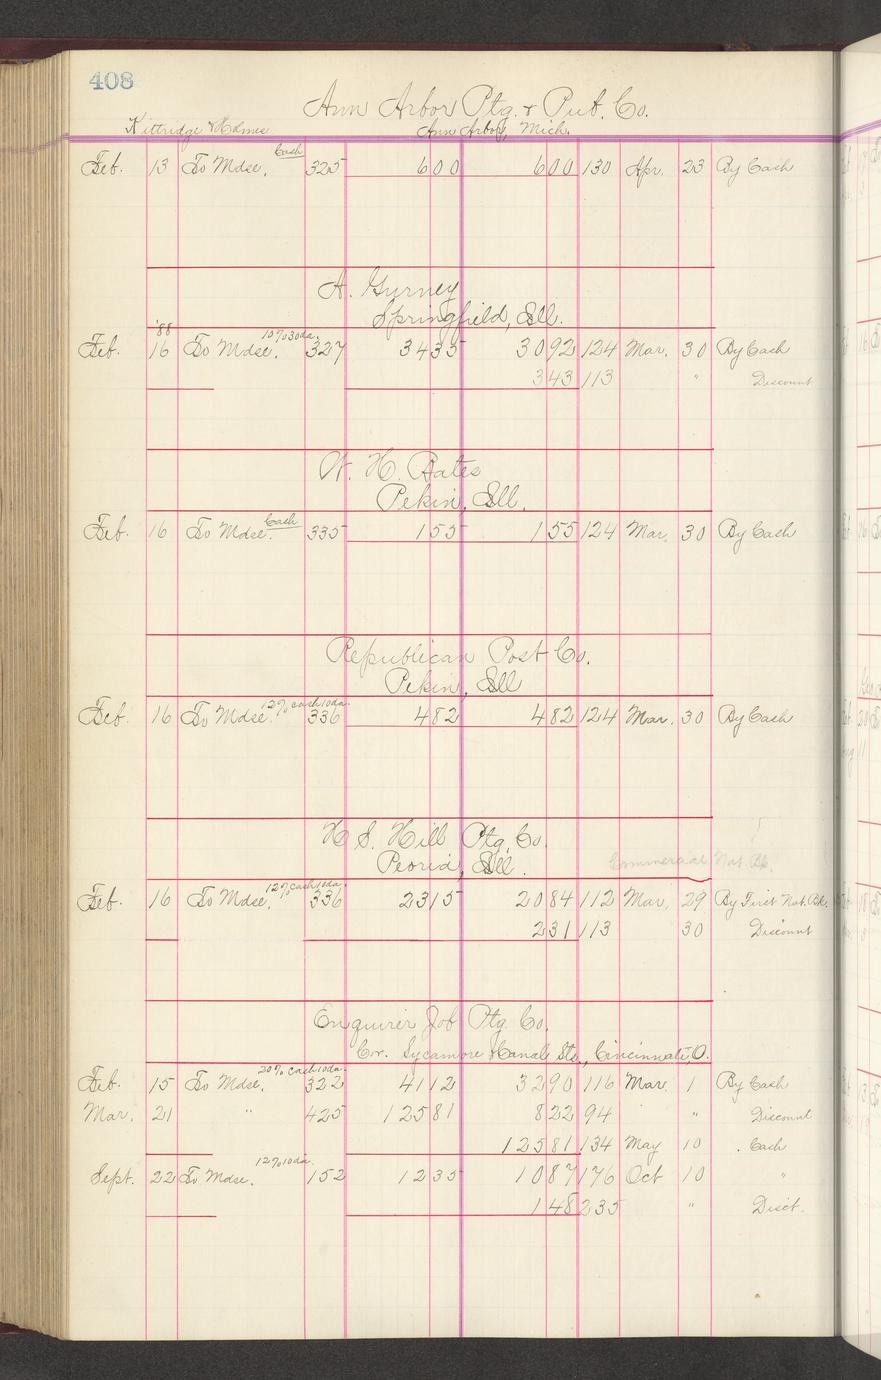 408
Ann Arbor Ptg. & Pub. Co.
Kittridge & Holmes Ann Arbor, Mich.
Feb. 13 To Mdse. Cash 325 600 600 130 Apr. 23 By Cash
A. Gurney
Springfield, Ill.
'88
Feb. 16 To Mdse. 10% 30 da. 327 3435 3092 124 Mar. 30 By Cash
343 113 " Discount
W. H. Bates
Pekin, Ill.
Feb. 16 To Mdse. Cash 335 155 155 124 Mar. 30 By Cash
Republican Post Co.
Pekin, Ill
Feb. 16 To Mdse. 12% cash 10 da. 336 482 482 124 Mar. 30 By Cash
H. S. Hill Ptg. Co.
Peoria, Ill. Commercial Nat. Bk.
Feb. 16 To Mdse. 12% cash 10 da. 336 2315 2084 112 Mar. 29 By First Nat. Bk.
231 113 30 Discount
Enquirer Job Ptg. Co.
Cor. Sycamore & Canal Sts., Cincinnati, O.
Feb. 15 To Mdse. 20% cash 10 da. 322 4112 3290 116 Mar. 1 By Cash
Mar. 21 " 425 12581 822 94 " Discount
12581 134 May 10 . Cash
Sept. 22 To Mdse. 12% 10 da. 152 1235 1087 176 Oct 10 "
148 235 " Disct.